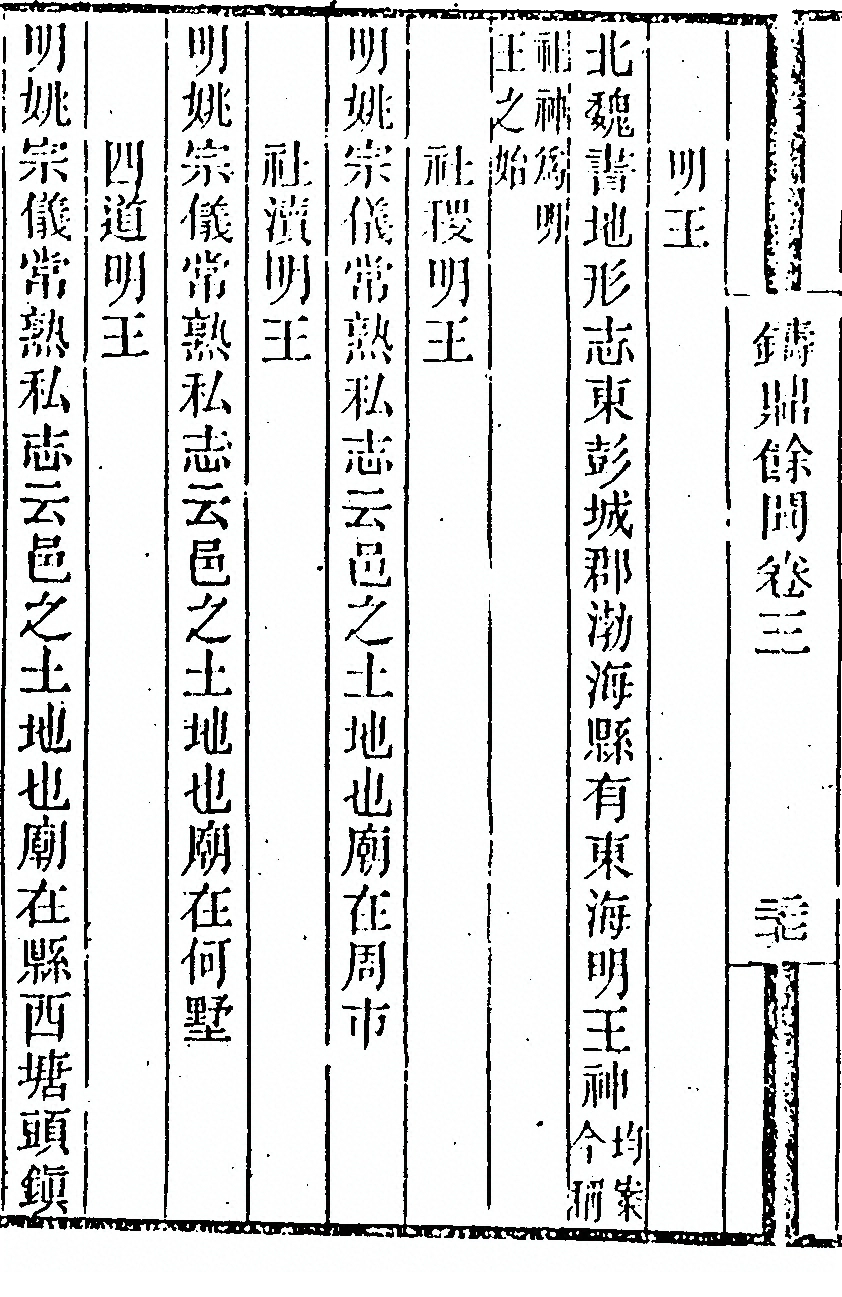 鑄鼎餘聞卷三
明王
北魏書地形志東彭城郡渤海縣有東海明王神均案今稱
社神爲明王之始
社稷明王
明姚宗儀常熟私志云邑之土地也廟在周市
社瀆明王
明姚宗儀常熟私志云邑之土地也廟在何墅
四道明王
明姚宗儀常熟私志云邑之土地也廟在縣西塘頭鎭